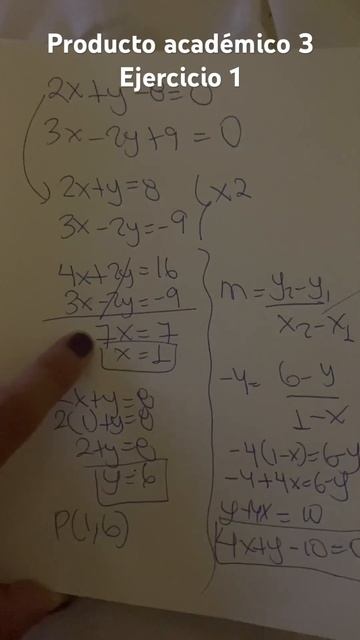 Producto académico 3
Ejercicio 1
2x+y-8=0
3x-2y+9=0
2x+y=8 (x2
3x-2y=-9
4x+2y=16
3x-2y=-9
7x=7
x=1
x+y=8
2(1)+y=8
2+y=8
y=6
P(1,6)
m=y₂-y₁/x₂-x₁
-4=6-y/1-x
-4(1-x)=6-y
-4+4x=6-y
y+4x=10
4x+y-10=0